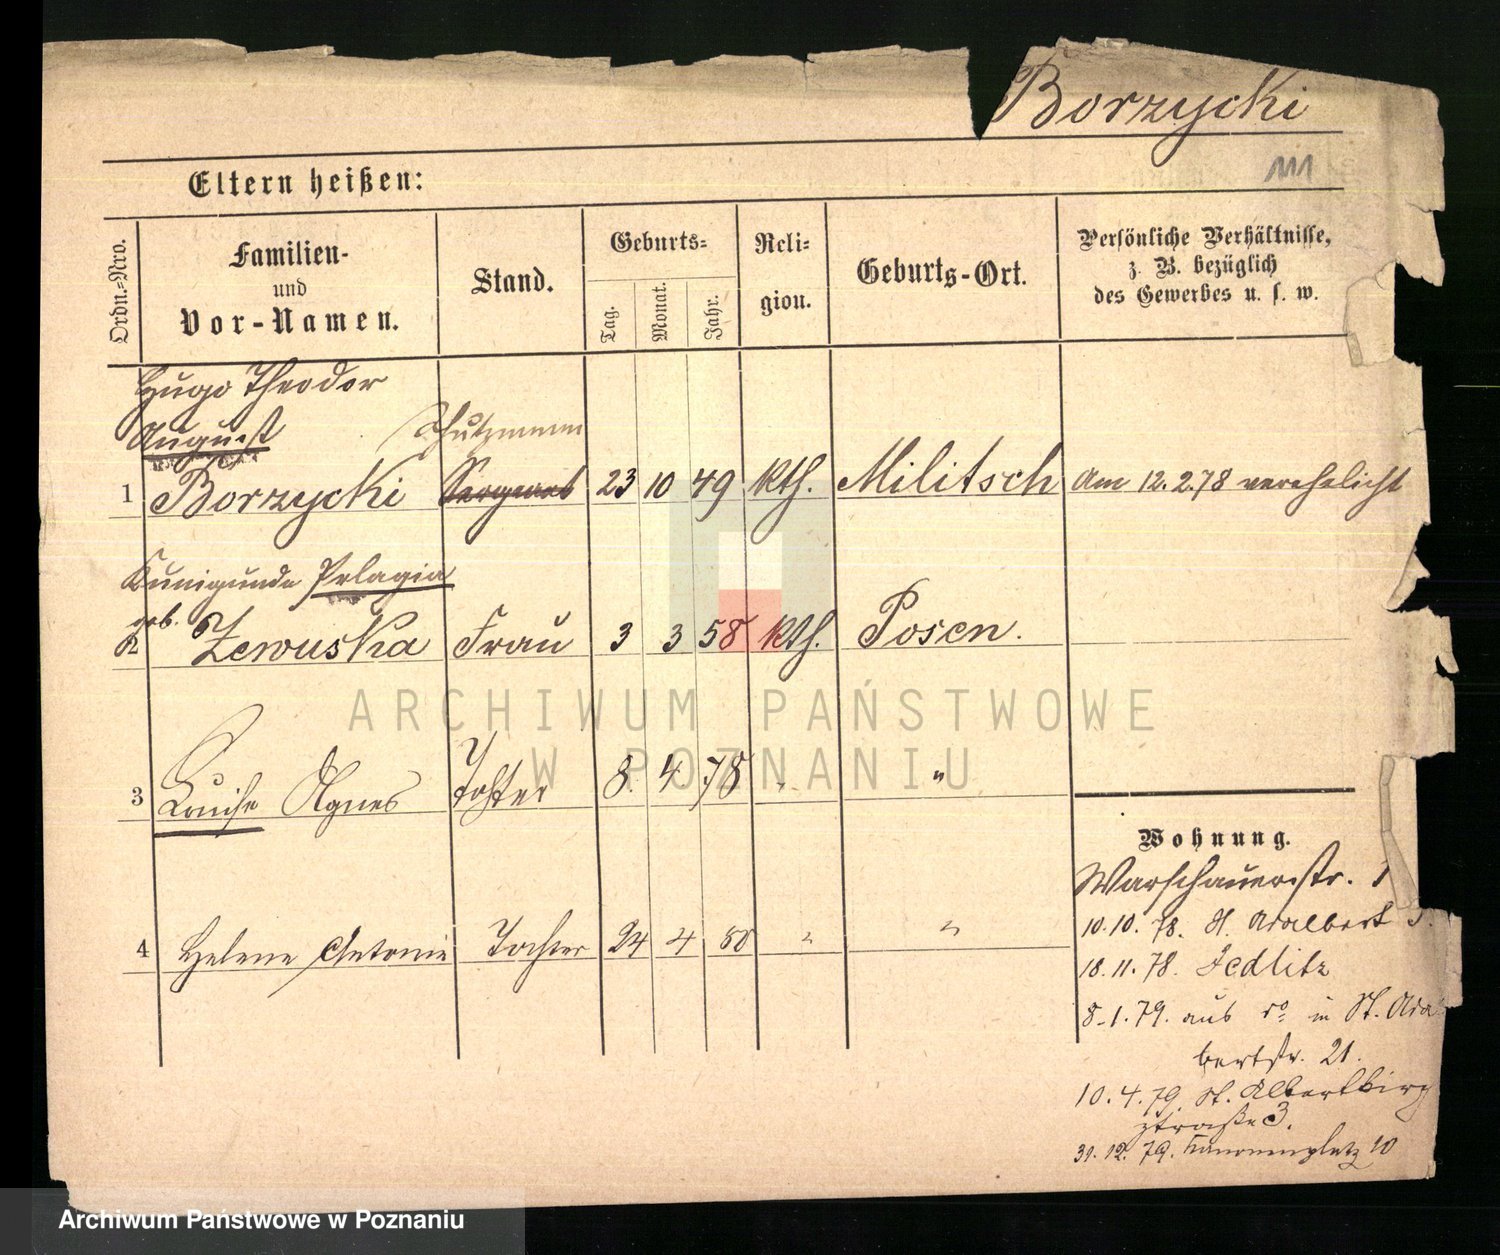 Borzycki
111
Eltern heißen:
Ordn.-Nro.
Familien-
und
Vor-Namen.
Stand.
Geburts-
Tag.
Monat.
Jahr.
Reli-
gion.
Geburts-Ort.
Persönliche Verhältnisse,
z. B. bezüglich
des Gewerbes u. s. w.
Hugo Theodor
August
Schutzmann
1 Borzycki Sergeant 23 10 49 kth. Militsch Am 12.2.78 verehelicht
Kunigunde Pelagia
geb.
2 Zewuska Frau 3 3 58 kth. Posen.
3 Louise Agnes Tochter 8. 4 78 " "
Wohnung.
Warschauerstr. 1
10.10.78. St. Adalbert
4 Helene Antonie Tochter 24 4 80 " "
18.11.78. Jedlitz
8.1.79. aus do in St. Ada
bertstr. 21.
10.4.79. St.
straße 3.
31.12.79. Kanonenplatz 10
ARCHIWUM PAŃSTWOWE
W POZNANIU
Archiwum Państwowe w Poznaniu